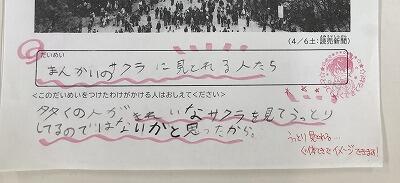 (4/6土:読売新聞)
だいめい
まんかいのサクラに見とれる人たち
<このだいめいをつけたわけがかける人はおしえてください>
多くの人がきれいなサクラを見てうっとり
してるのではないかと思ったから。
うっとり見とれる…
イメージできます!